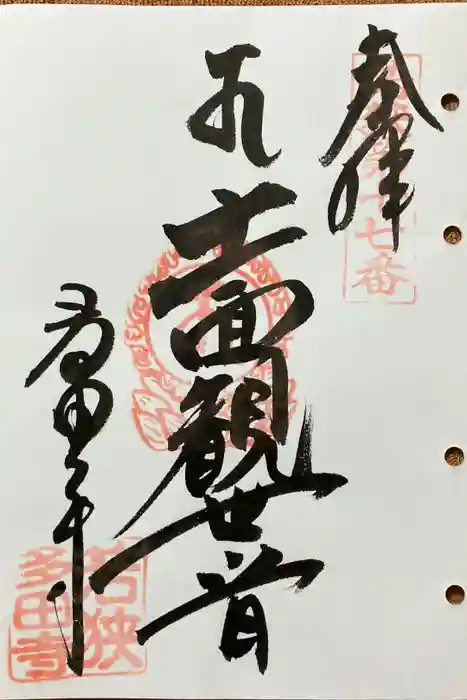 奉拝
十七番
十一面観世音
多田寺
若狭
多田寺